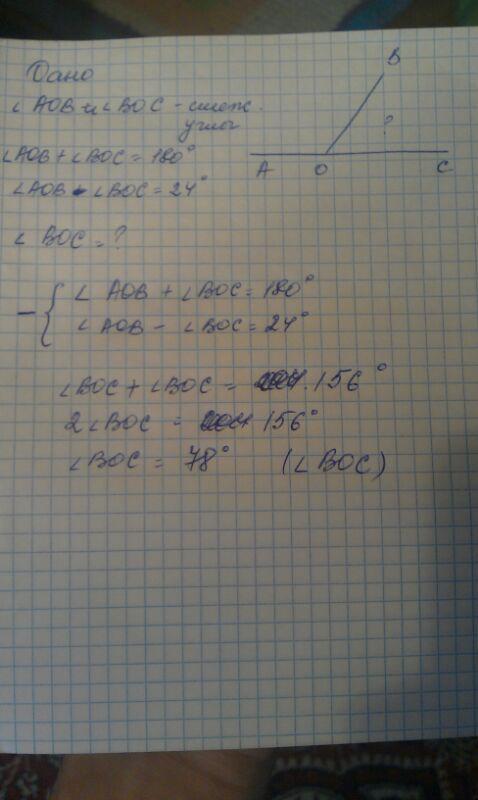 Дано
∠ AOB и ∠ BOC - смеж.
углы
∠AOB + ∠BOC = 180°
∠AOB - ∠BOC = 24°
∠ BOC = ?
B
?
A O C
- { ∠ AOB + ∠BOC = 180°
∠ AOB - ∠BOC = 24°
∠BOC + ∠BOC = 156°
2∠BOC = 156°
∠BOC = 78° (∠BOC)